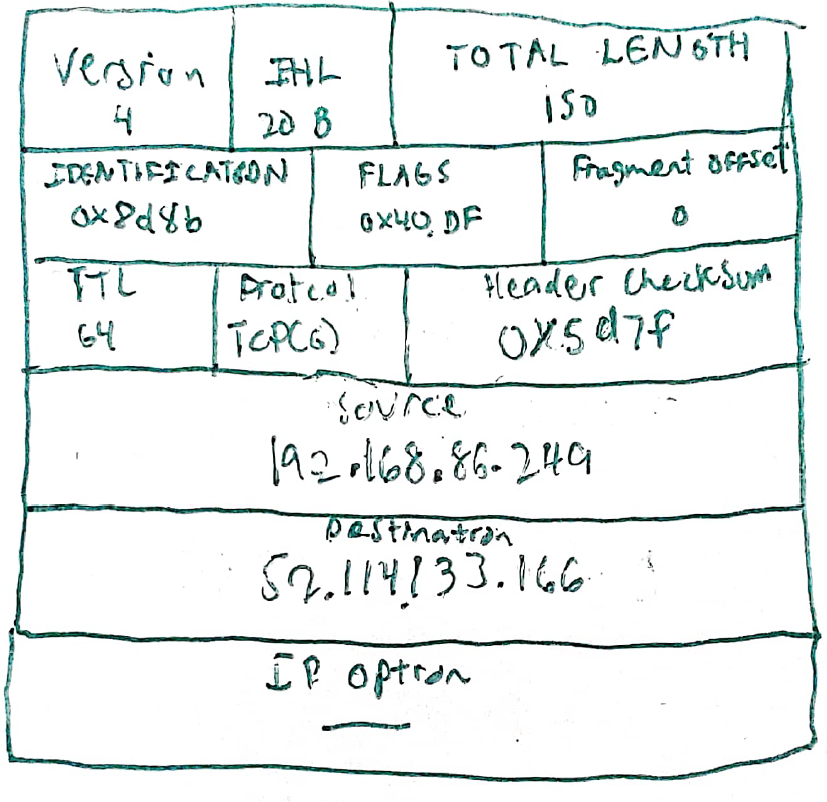 Version
4
IHL
20 B
TOTAL LENGTH
150
IDENTIFICATION
0x8d8b
FLAGS
0x40, DF
Fragment offset
0
TTL
64
Protcol
TCP(6)
Header Checksum
0x5d7f
Source
192.168.86.249
Destination
52.114.133.166
IP option
—